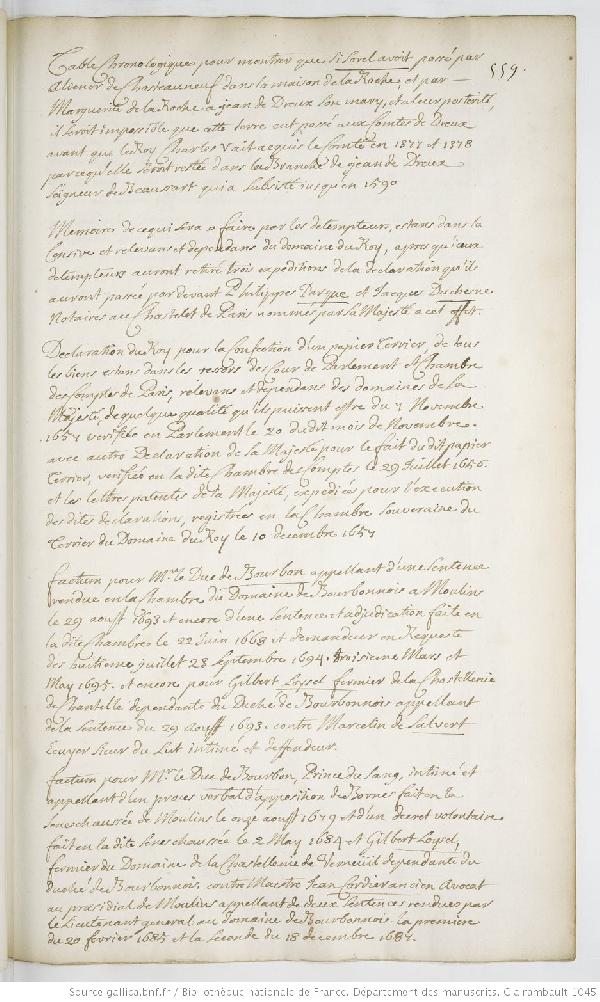 559.
Table Chronologique pour montrer que si Sorel avoit passé par
Alienor de Chasteauneuf dans la maison de la Roche, et par
Marguerite de la Roche a jean de Dreux son mary, et a leur posterité,
il seroit impossible que cette terre eut passé aux Comtes de Dreux
avant que le Roy Charles V ait acquis le Comté en 1377 et 1378
parcequ'elle seroit restée dans la Branche de jean de Dreux
Seigneur de Beaussart qui a subsisté jusqu'en 1590
Memoire de ce qui sera a faire par les detempteurs, estans dans la
Censive et relevans et dependans du domaine du Roy, apres qu'iceux
detempteurs auront retiré trois expeditions de la declaration qu'ils
auront passée par devant Philippes Parque et Jacques Duchesne
Notaires au Chastelet de Paris nommés par sa Majesté a cet effet.
Declaration du Roy pour la Confection d'un papier Terrier, de tous
les biens estans dans les ressors des Cour de Parlement et Chambre
des Comptes de Paris, relevans et dependans des domaines de sa
Majesté, de quelque qualité qu'ils puissent estre du 7 Novembre
1657 verifiée en Parlement le 20 dudit mois de Novembre.
avec autre Declaration de sa Majesté pour le fait dudit papier
Terrier, verifiée en ladite Chambre des Comptes le 29 Juillet 1656.
et les lettres patentes de sa Majesté, expediées pour l'execution
des dites declarations, registrées en la Chambre souveraine du
Terrier du Domaine du Roy le 10 decembre 1657
factum pour Mr. le Duc de Bourbon appellant d'une Sentence
rendue en la Chambre du Domaine de Bourbonnois a Moulins
le 29 aoust 1693 et encore d'une Sentence et adjudication faite en
la dite Chambre le 22 Juin 1668 et demandeur en Requeste
des huitieme juillet 28 Septembre 1694. troisieme Mars et
May 1695. et encore pour Gilbert Loysel fermier de la Chastellenie
de Chantelle dependante du Duché de Bourbonnois appellant
de la Sentence du 29 Aoust 1693. contre Marcelin de Salvert
Ecuyer Sieur du Lut intimé et deffendeur.
factum pour Mr. le Duc de Bourbon, Prince du Sang, intimé et
appellant d'un proces verbal d'apposition de Bornes fait en la
Seneschaussée de Moulins le onze aoust 1679 et d'un decret volontaire
fait en la dite Seneschaussée le 2 May 1684 et Gilbert Loysel,
fermier du Domaine de la Chastellenie de Verneuil dependante du
duché de Bourbonnois contre Maistre Jean Cordier ancien Avocat
au presidial de Moulin appellant de deux Sentences rendues par
le Lieutenant general au Domaine de Bourbonnois la premiere
du 20 fevrier 1685 et la seconde du 18 decembre 1687.
Source gallica.bnf.fr / Bibliothèque nationale de France. Département des manuscrits. Clairambault 1045